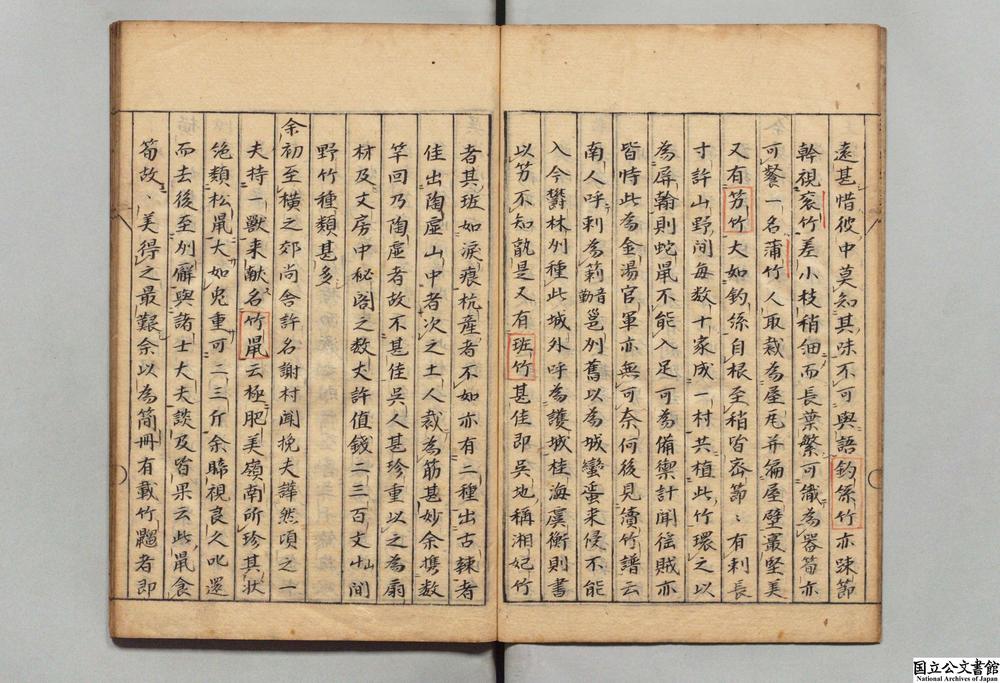 遠甚惜彼中莫知其味不可與語釣絲竹亦踈節
幹視衮竹差小枝稍細而長葉繁可織為器筍亦
可餐一名蒲竹人取裁為屋瓦并徧屋壁叢堅美
又有竻竹大如釣絲自根至稍皆密節〻有刺長
寸許山野間每数十家成一村共植此竹環之以
為屏翰則蛇鼠不能入足可為備禦計聞徭賊亦
皆時此為金湯官軍亦無可奈何後見續竹譜云
南人呼刺為簕音勒邕州舊以為城蠻蜑来侵不能
入今欝林州種此城外呼為護城桂海虞衡則書
以竻不知孰是又有班竹甚佳即吳地稱湘妃竹
者其班如淚痕杭産者不如亦有二種出古辣者
佳出陶虛山中者次之土人裁為筯甚妙余携数
竿回乃陶虛者故不甚佳吳人甚珍重以之為扇
材及文房中秘閣之数丈許值錢二三百文山間
野竹種類甚多
余初至橫之郊尚舎許名謝村聞挽夫譁然頃之一
夫持一獸来献名竹鼠云極肥美嶺南所珍其状
絶類松鼠大如兔重可二三斤余睇視良久叱還
而去後至州廨與諸士大夫談及皆果云此鼠食
筍故〻美得之最艱余以為简冊有載竹䶉者即
国立公文書館
National Archives of Japan